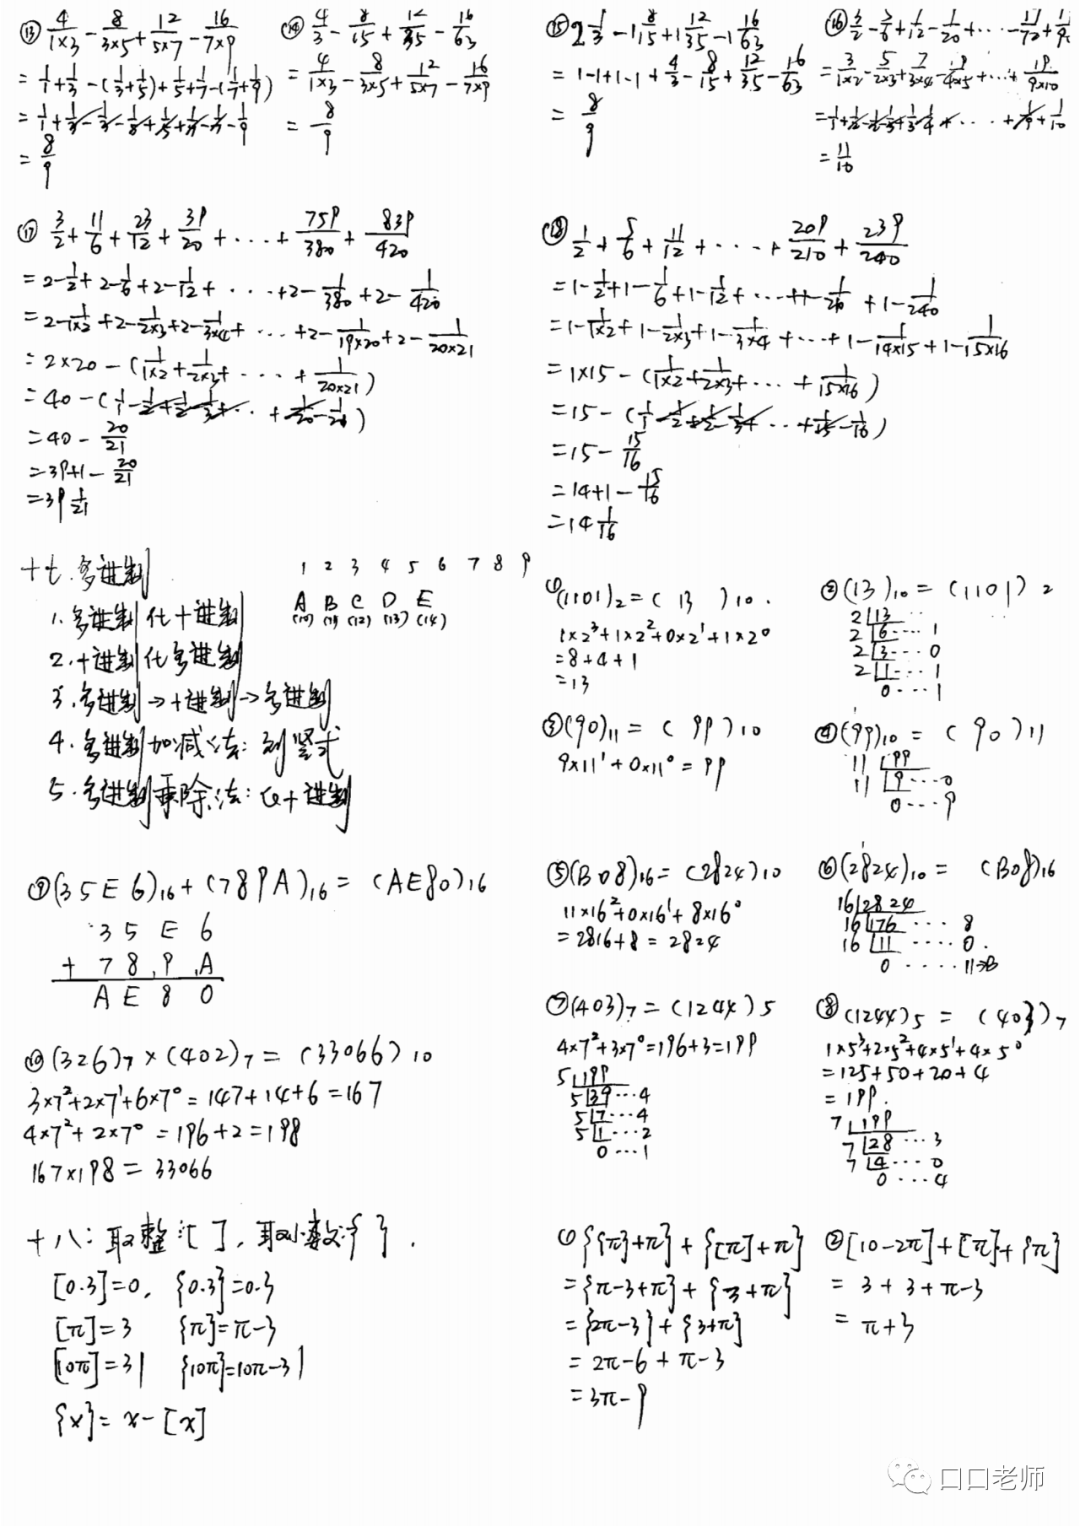 ⑬ 4/1×3 - 8/3×5 + 12/5×7 - 16/7×9
= 1/1 + 1/3 - (1/3 + 1/5) + 1/5 + 1/7 - (1/7 + 1/9)
= 1/1 + 1/3 - 1/3 - 1/5 + 1/5 + 1/7 - 1/7 - 1/9
= 8/9
⑭ 4/3 - 8/15 + 12/35 - 16/63
= 4/1×3 - 8/3×5 + 12/5×7 - 16/7×9
= 8/9
⑮ 2 1/3 - 1 8/15 + 1 12/35 - 1 16/63
= 1-1+1-1 + 4/3 - 8/15 + 12/35 - 16/63
= 8/9
⑯ 3/2 - 5/6 + 7/12 - 9/20 + ... - 17/72 + 19/90
= 3/1×2 - 5/2×3 + 7/3×4 - 9/4×5 + ... + 19/9×10
= 11/10
⑰ 3/2 + 11/6 + 23/12 + 39/20 + ... + 759/380 + 839/420
= 2 - 1/2 + 2 - 1/6 + 2 - 1/12 + ... + 2 - 1/380 + 2 - 1/420
= 2 - 1/1×2 + 2 - 1/2×3 + 2 - 1/3×4 + ... + 2 - 1/19×20 + 2 - 1/20×21
= 2×20 - (1/1×2 + 1/2×3 + ... + 1/20×21)
= 40 - (1/1 - 1/2 + 1/2 - 1/3 + ... + 1/20 - 1/21)
= 40 - 20/21
= 39+1 - 20/21
= 39 1/21
⑱ 1/2 + 5/6 + 11/12 + ... + 209/210 + 239/240
= 1 - 1/2 + 1 - 1/6 + 1 - 1/12 + ... + 1 - 1/210 + 1 - 1/240
= 1 - 1/1×2 + 1 - 1/2×3 + 1 - 1/3×4 + ... + 1 - 1/14×15 + 1 - 1/15×16
= 1×15 - (1/1×2 + 1/2×3 + ... + 1/15×16)
= 15 - (1/1 - 1/2 + 1/2 - 1/3 + ... + 1/15 - 1/16)
= 15 - 15/16
= 14+1 - 15/16
= 14 1/16
十七.多进制
1 2 3 4 5 6 7 8 9
A B C D E
(10) (11) (12) (13) (14)
1.多进制化十进制
2.十进制化多进制
3.多进制→十进制→多进制
4.多进制加减法:列竖式
5.多进制乘除法:化十进制
① (1101)₂ = ( 13 )₁₀.
1×2³+1×2²+0×2¹+1×2⁰
= 8+4+1
= 13
② (13)₁₀ = (1101)₂
2 13
2 6 ... 1
2 3 ... 0
2 1 ... 1
0 ... 1
③ (90)₁₁ = ( 99 )₁₀
9×11¹ + 0×11⁰ = 99
④ (99)₁₀ = ( 90 )₁₁
11 99
11 9 ... 0
0 ... 9
⑤ (B08)₁₆ = (2824)₁₀
11×16²+0×16¹+8×16⁰
= 2816+8 = 2824
⑥ (2824)₁₀ = (B08)₁₆
16 2824
16 176 .... 8
16 11 .... 0.
0 ..... 11→B
⑦ (403)₇ = (1244)₅
4×7²+3×7⁰=196+3=199
5 199
5 39 ... 4
5 7 ... 4
5 1 ... 2
0 ... 1
⑧ (1244)₅ = (403)₇
1×5³+2×5²+4×5¹+4×5⁰
= 125+50+20+4
= 199.
7 199
7 28 ... 3
7 4 ... 0
0 ... 4
⑨ (35E6)₁₆ + (789A)₁₆ = (AE80)₁₆
3 5 E 6
+ 7 8 9 A
A E 8 0
⑩ (326)₇ × (402)₇ = (33066)₁₀
3×7²+2×7¹+6×7⁰ = 147+14+6 = 167
4×7²+2×7⁰ = 196+2 = 198
167×198 = 33066
十八:取整[ ],取小数{ }.
[0.3]=0, {0.3}=0.3
[π]=3 {π}=π-3
[10π]=31 {10π}=10π-31
{x}= x-[x]
① {{π}+π} + {[π]+π}
= {π-3+π} + {3+π}
= {2π-3} + {3+π}
= 2π-6 + π-3
= 3π-9
② [10-2π]+[π]+{π}
= 3 + 3 + π-3
= π+3
口口老师